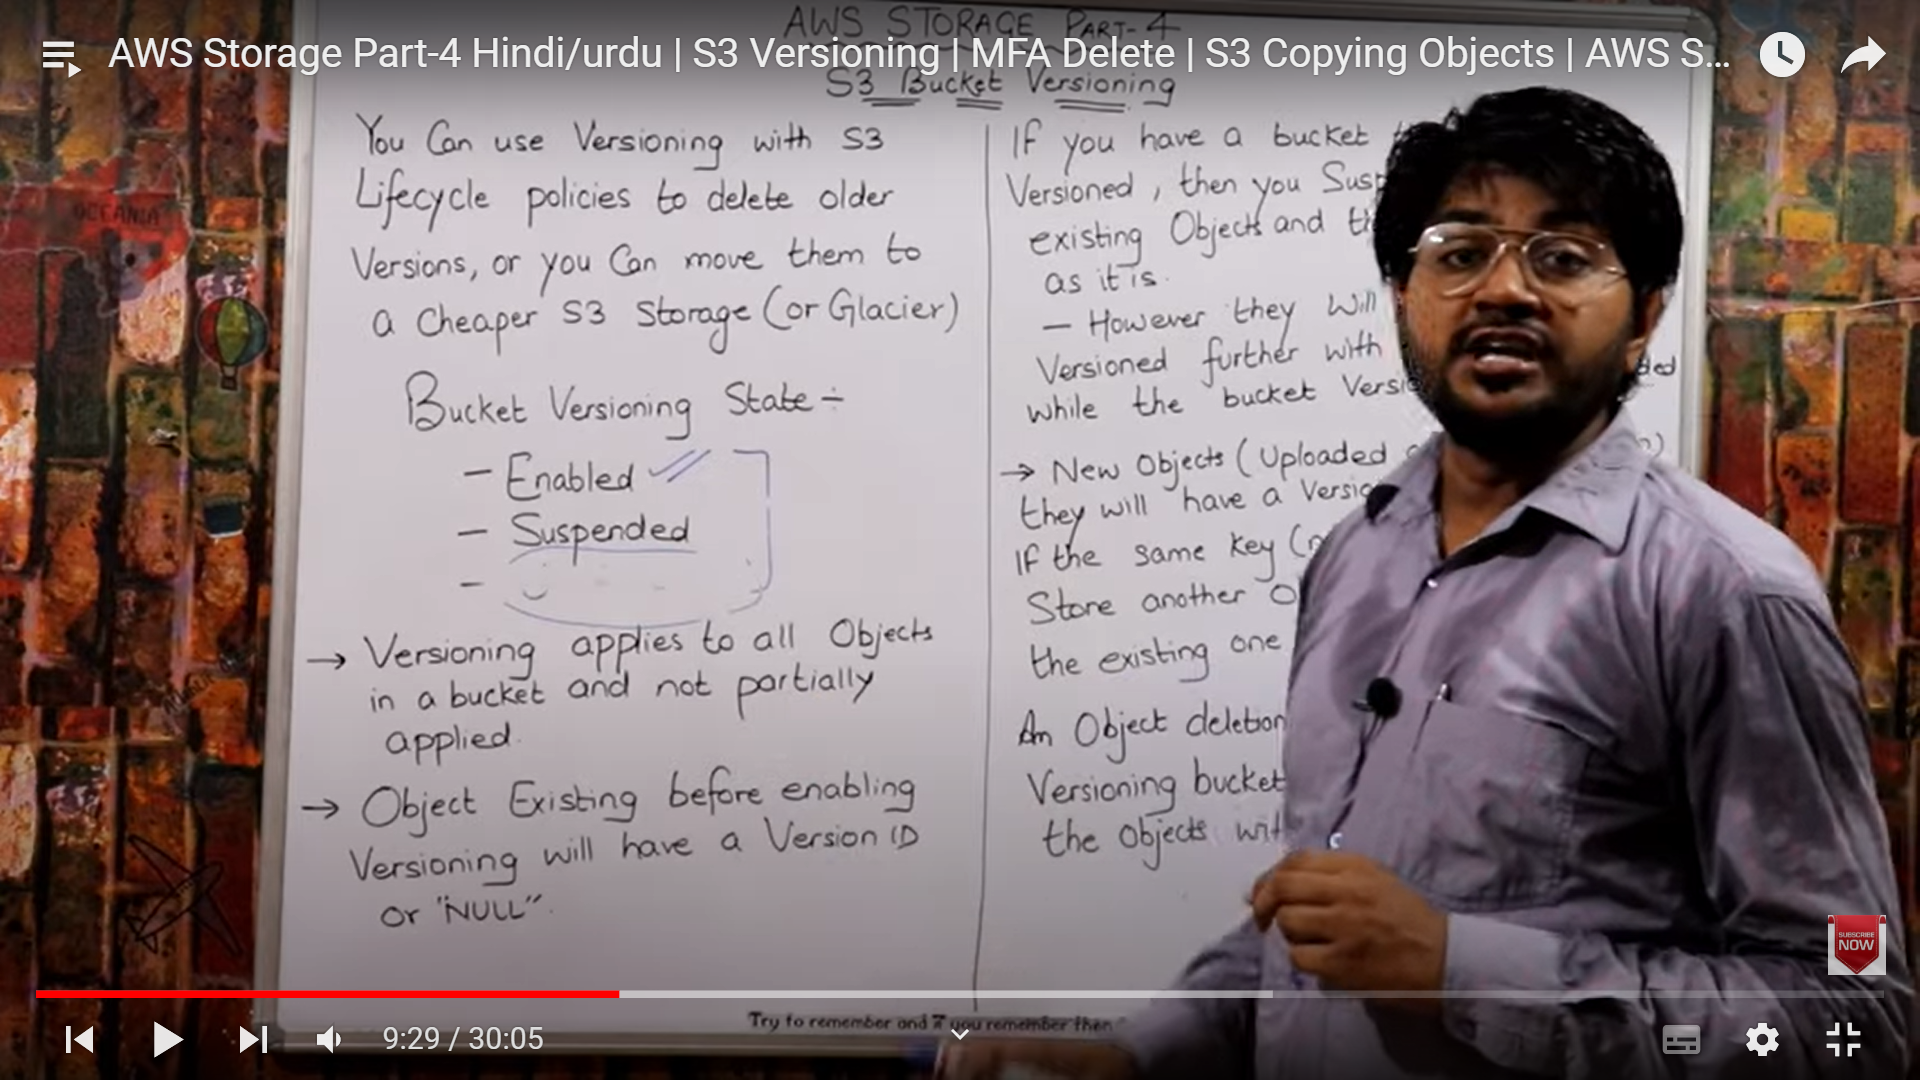 AWS STORAGE PART-4
AWS Storage Part-4 Hindi/urdu | S3 Versioning | MFA Delete | S3 Copying Objects | AWS S...
S3 Bucket Versioning
You Can use Versioning with S3
Lifecycle policies to delete older
Versions, or you Can move them to
a Cheaper S3 Storage (or Glacier)
Bucket Versioning State ÷
– Enabled
– Suspended
–
→ Versioning applies to all Objects
in a bucket and not partially
applied.
→ Object Existing before enabling
Versioning will have a Version ID
or "NULL".
If you have a bucket
Versioned, then you
existing Objects and
as it is.
– However they Will
Versioned further with
while the bucket
→ New Objects (Uploaded
they will have a
If the same key
Store another
the existing one
An Object deletion
Versioning bucket
the Objects
OCEANIA
SUBSCRIBE
NOW
Try to remember and if you remember then
9:29 / 30:05